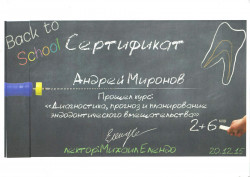 Back to
School
Сертификат
Андрей Миронов
Прошел курс
«Диагностика, прогноз и планирование
эндодонтического вмешательства»
2+6=
лектор: Михаил Елендо
20.12.15